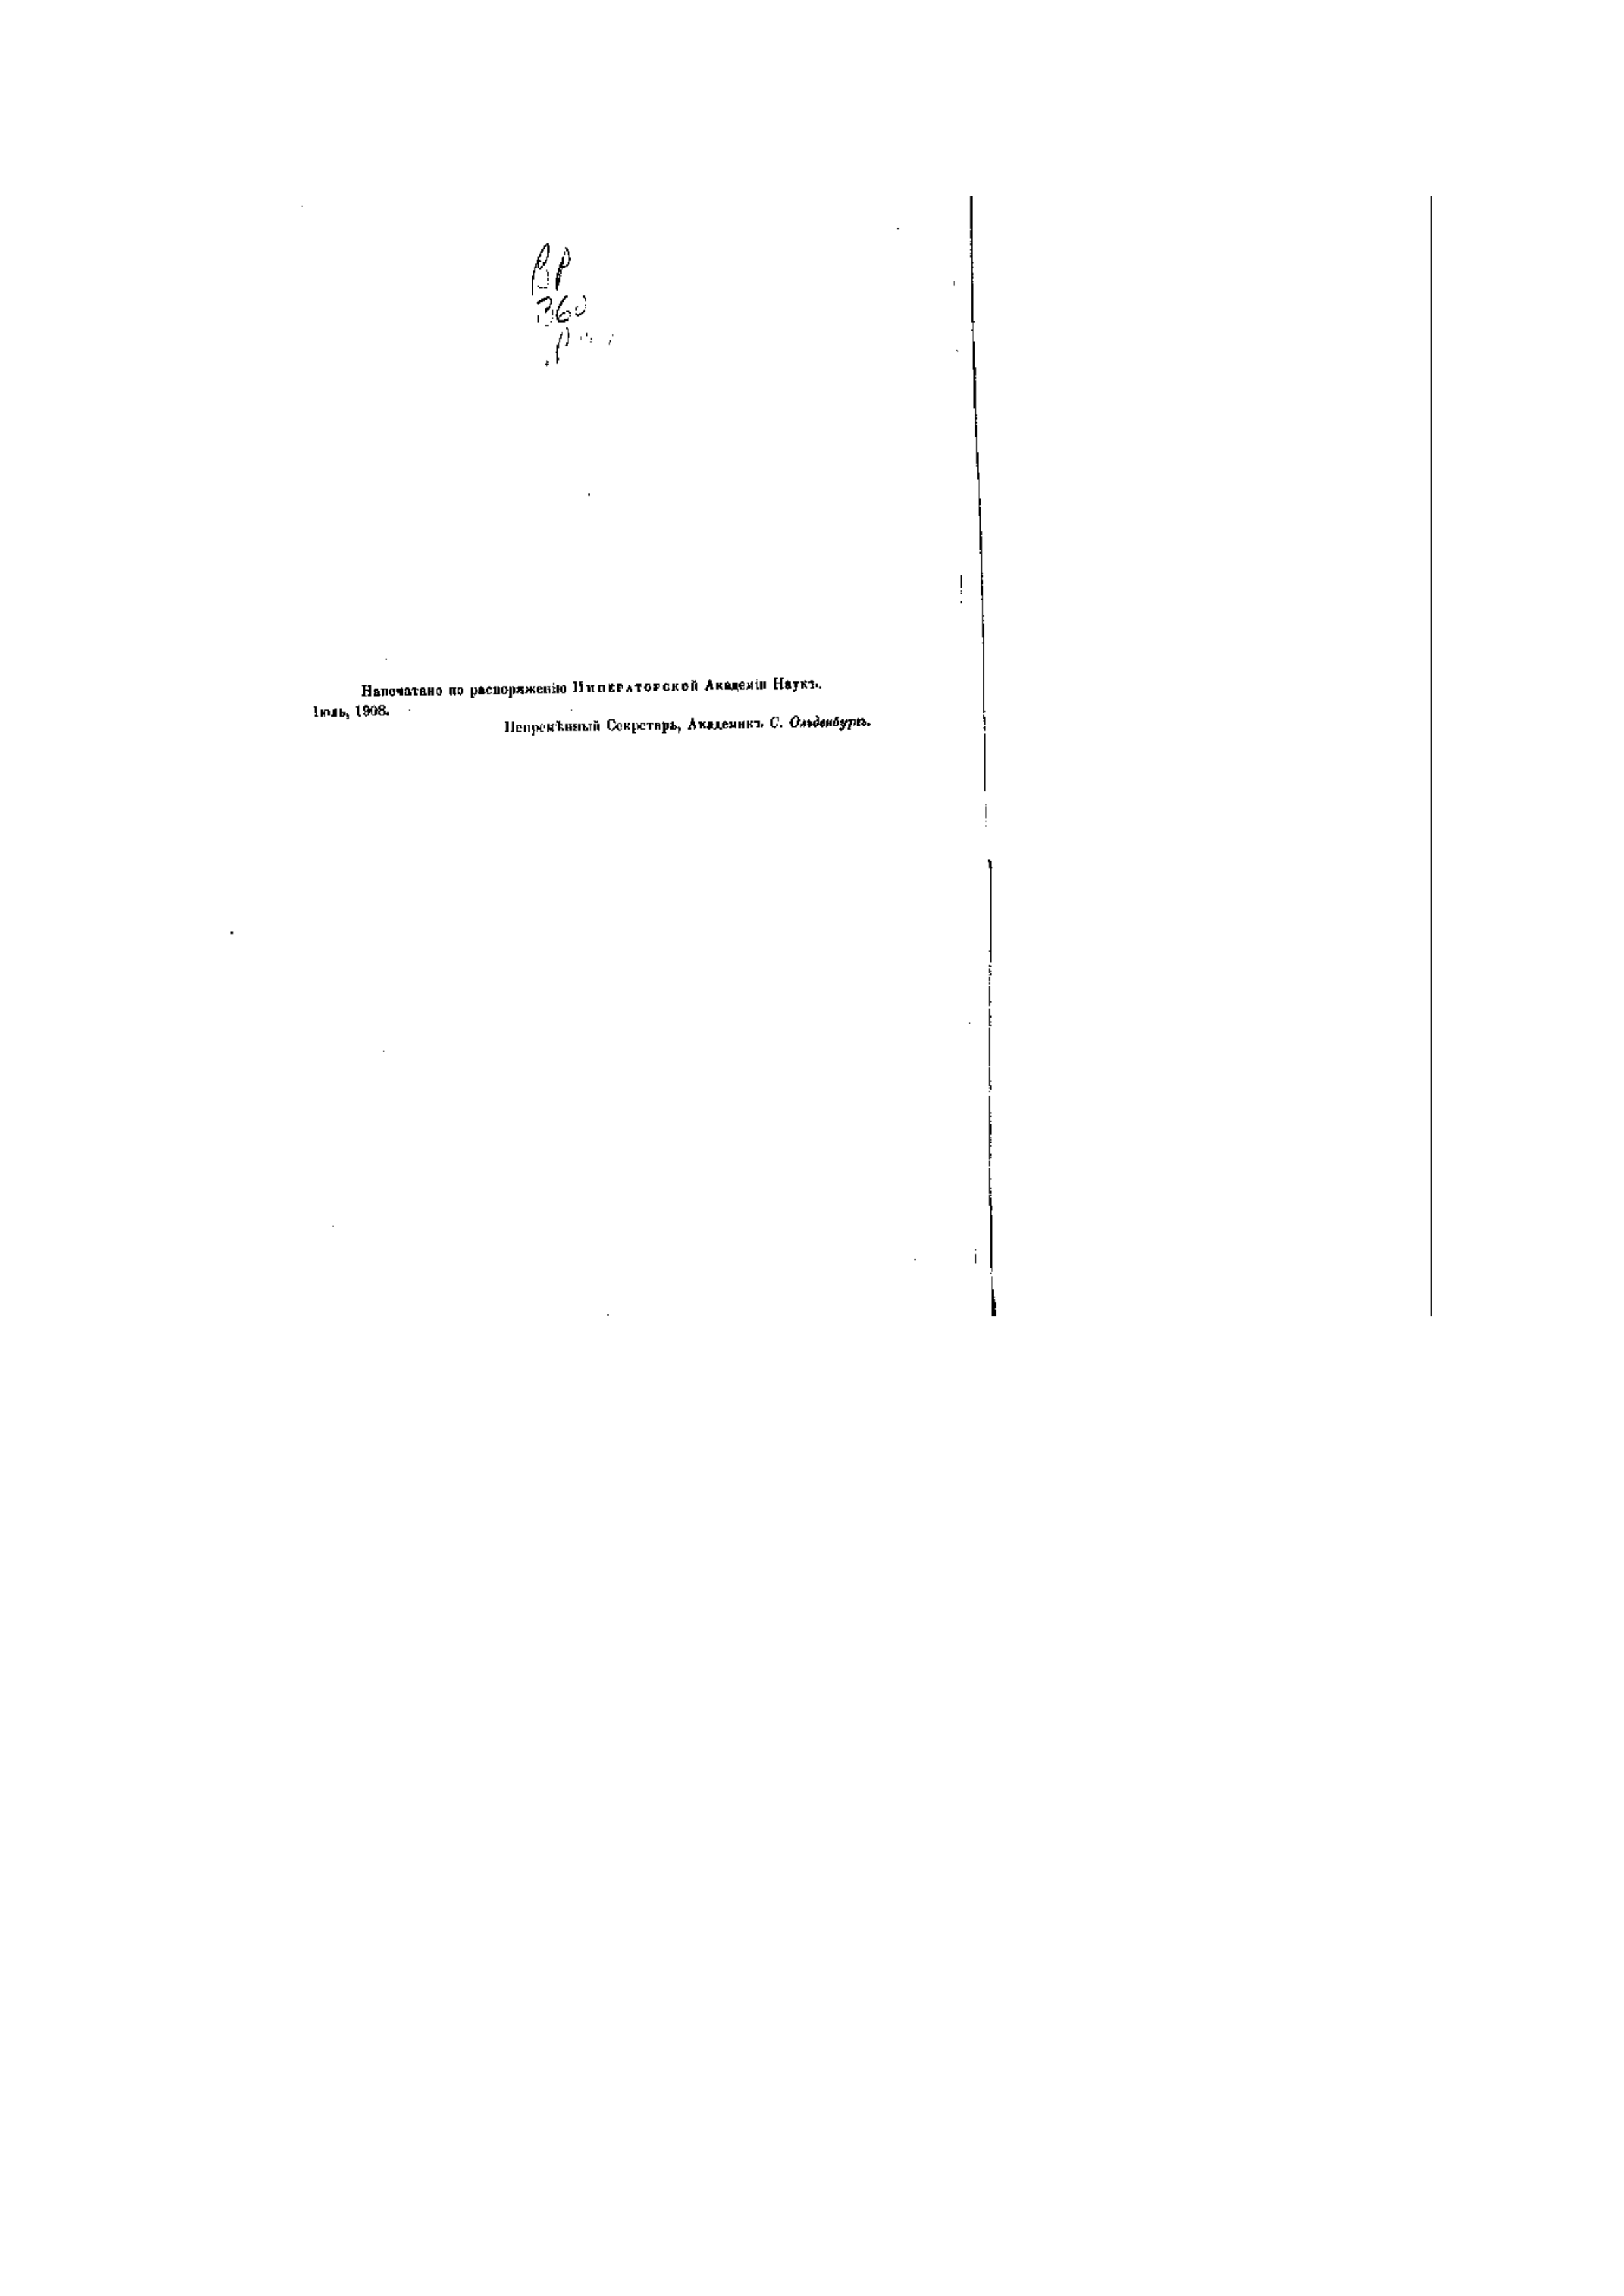 BP
360
Напечатано по распоряженію Императорской Академіи Наукъ.
Іюль, 1908.
Непремѣнный Секретарь, Академикъ С. Ольденбургъ.